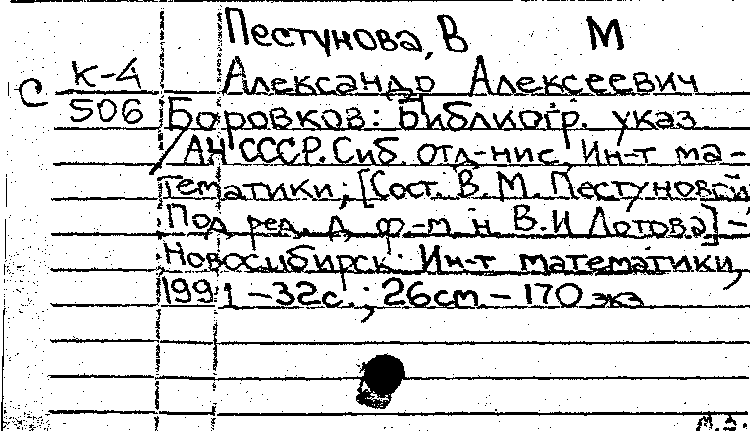 Пестунова, В М
С К-4 Александр Алексеевич
506 Боровков: Библиогр. указ
/АН СССР. Сиб. отд-ние, Ин-т ма-
тематики; [Сост. В. М. Пестуновой
Под ред. д. ф-м. н В. И Лотова] -
Новосибирск: Ин-т математики,
1991 - 32с.; 26см - 170 экз
м.з.